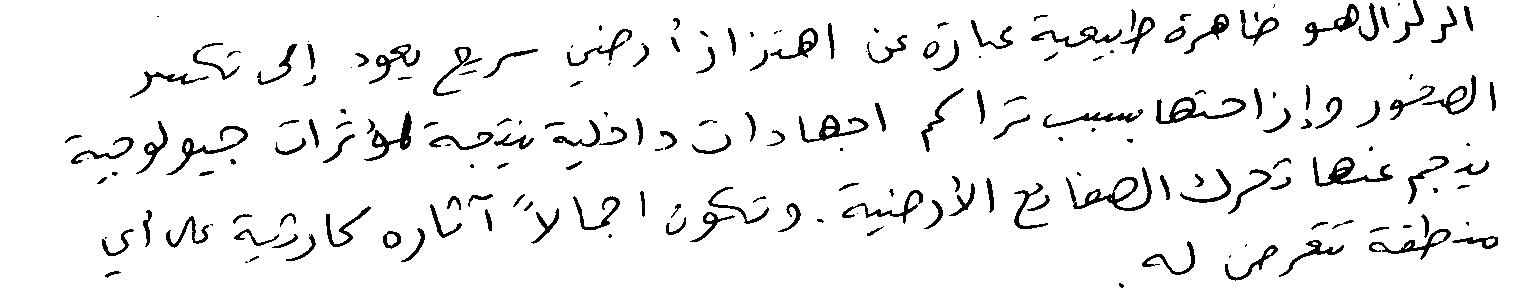 الزلزال هو ظاهرة طبيعية عبارة عن اهتزاز أرضي سريع يعود إلى تكسر
الصخور وإزاحتها بسبب تراكم اجهادات داخلية نتيجة لمؤثرات جيولوجية
ينجم عنها تحرك الصفائح الأرضية. وتكون اجمالاً آثاره كارثية على أي
منطقة تتعرض له.